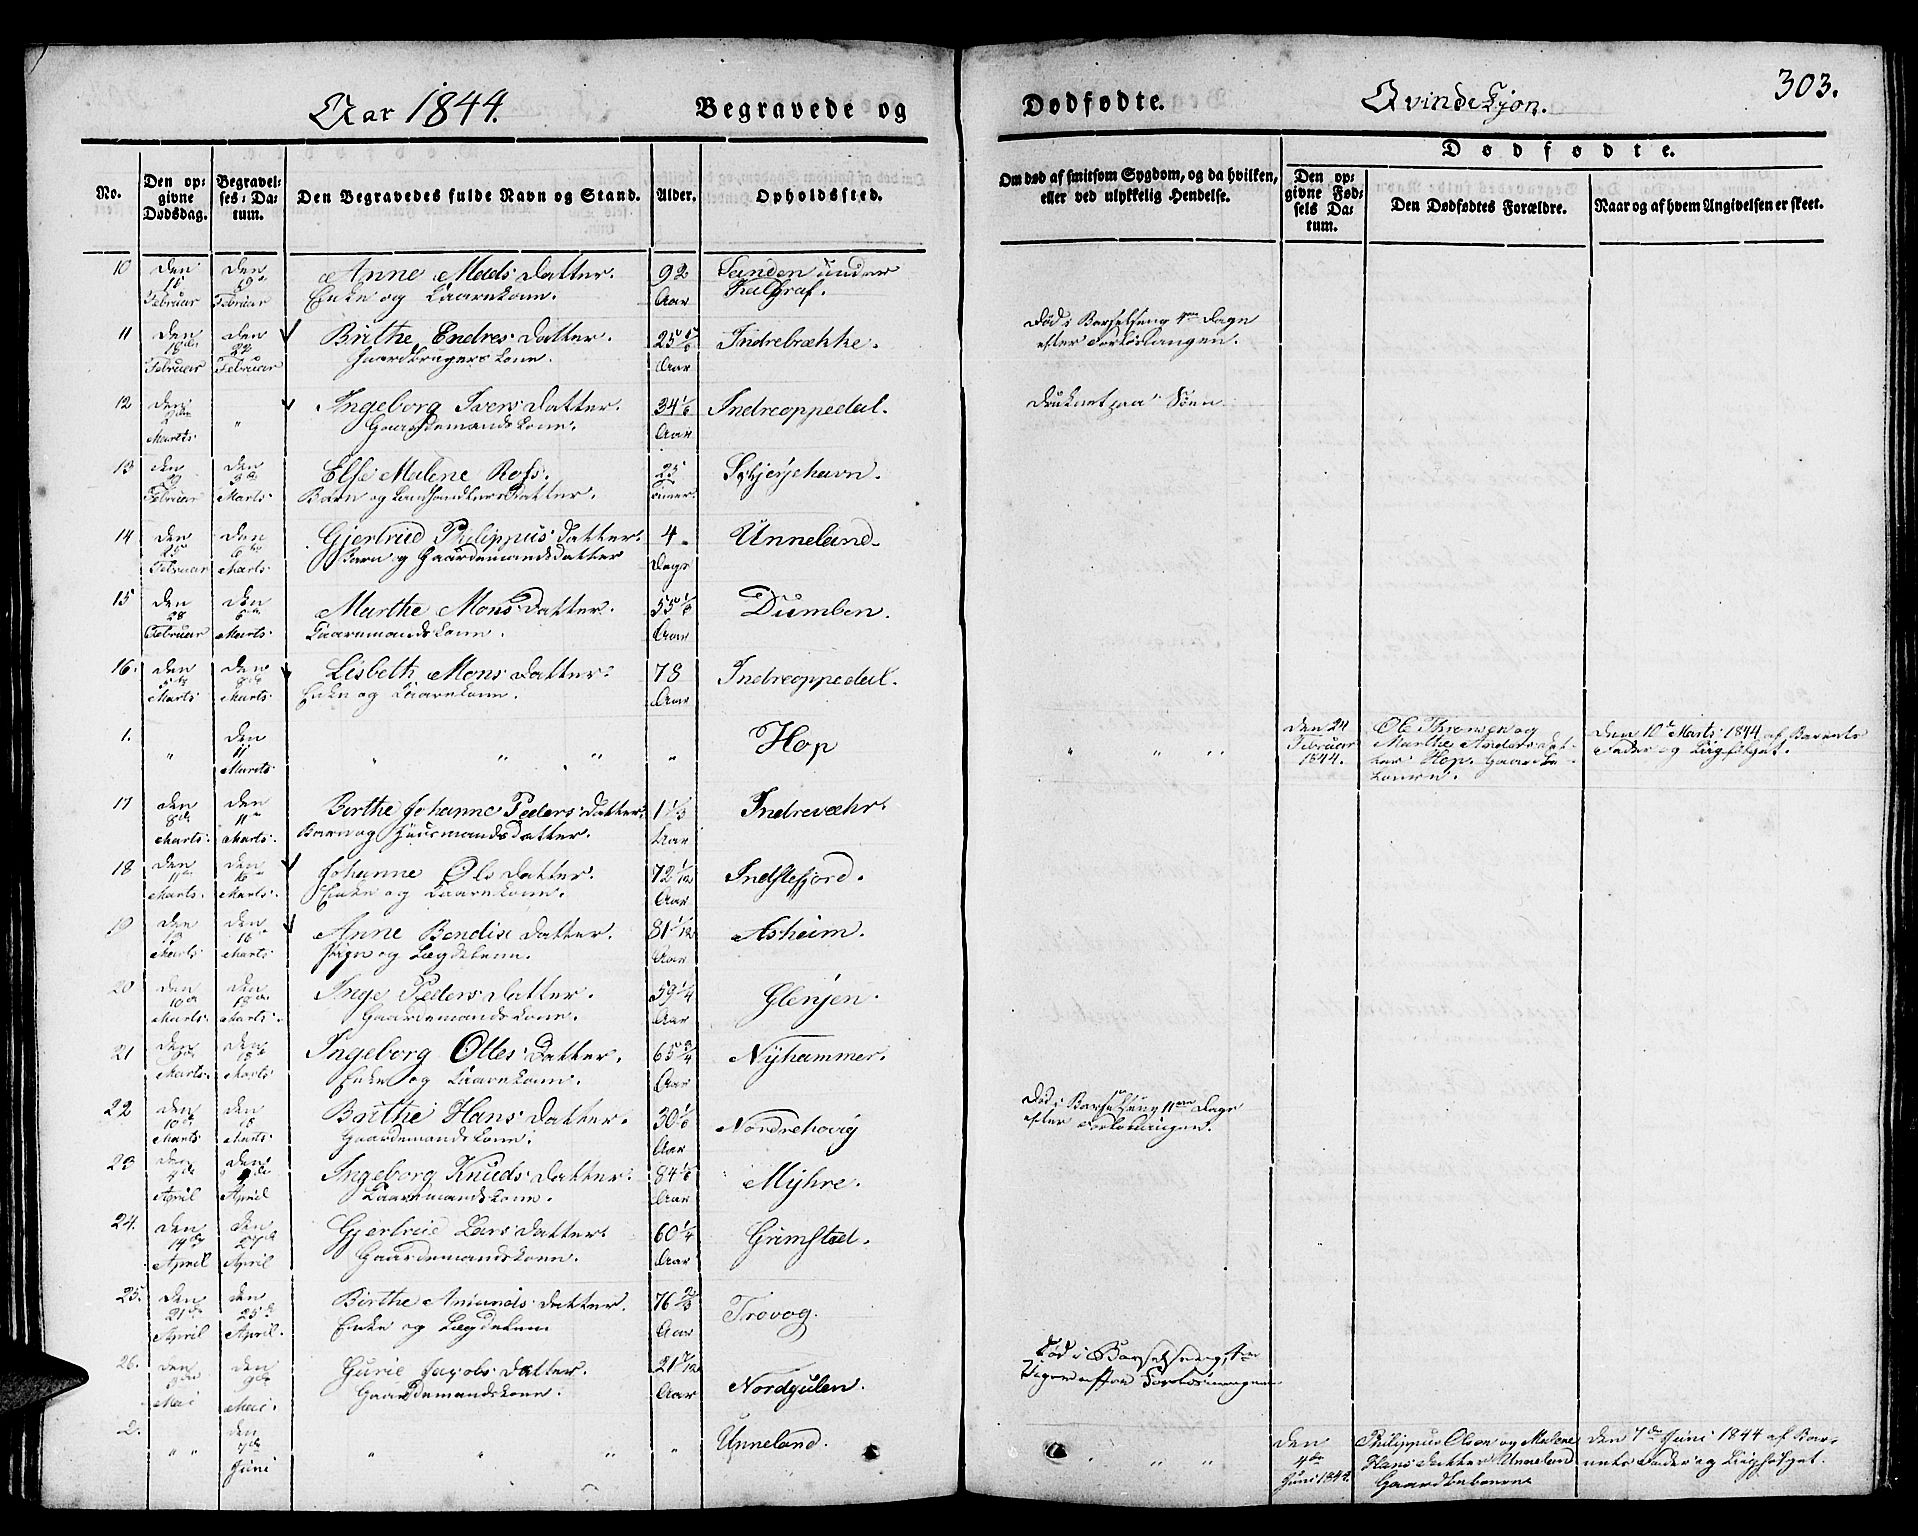 Aar 1844.
Begravede og
Dødfødte.
Qvindekjøn.
303.
No.
Den opgivne Dødsdag.
Begravelses-Datum.
Den Begravedes fulde Navn og Stand.
Alder.
Opholdssted.
Om død af smitsom Sygdom, og da hvilken,
eller ved ulykkelig Hendelse.
Dødfødte.
Den opgivne Fødsels Datum.
Den Dødfødtes Forældre.
Naar og af hvem Angivelsen er skeet.
10 Den Den 19de Anne Mads Datter. 92 Sanden under
Februar Februar Enke og Kaarekone. Aar
11 Den Den 22 Birthe Endres Datter. 25 Indrebrække. Død i Barselseng Dage
Februar Februar Aar efter Forløsningen.
12 Den Ingeborg Ivers Datter. 34 1/6 Indreoppedal. Druknet paa Søen
Marts " Gaardemands Kone. Aar
13 Den Den Else Malene Ross. 25 Skjerjehavn.
Februar Marts Barn og Landhandlers Datter.
14 Den 25 Den 6te Gjertrud Philippus Datter. 4 Unneland.
Februar Marts Barn og Gaardemandsdatter Dage
15 Den 28 Den Marthe Mons Datter. 55 Dumben.
Februar Marts Kaaremands Kone. Aar
16. Den Den Lisbeth Mons Datter. 78 Indreoppedal.
Marts Marts Enke og Kaarekone. Aar
1. " Den 11 Marts " " " " Hop " " " Den 24 Februar 1844. Ole Thronsen og Marthe Andersdatter Hop. Den 10de Marts 1844 af Barnets Fader og Ligfølget.
17 Den 8de Den 11te Birthe Johanne Peders Datter. 1 1/3 Indrevæhr.
Marts. Marts. Barn og Huusmands Datter. Aar
18 Den 11te Den 16 Johanne Ols Datter. 72 1/12 Indstefjord.
Marts. Marts. Enke og Kaarekone. Aar
19 Den Den 16 Anne Bendix Datter. 81 1/12 Asheim.
Marts Marts Pige og Lægdslem. Aar
20 Den 10de Den Inge Peders Datter. 59 1/4 Glenjen.
Marts. Marts. Gaardemands Kone. Aar
21 Den Den Ingeborg Ottes Datter. 65 3/4 Nÿhammer.
Marts. Marts Enke og Kaarekone. Aar
22 Den 10de Den 15 Birthe Hans Datter. 30 1/6 Nordrehovig Død i Barselseng 11te Dage
Marts Marts Gaardemands Kone. Aar efter Forløsningen.
23 Den Den Ingeborg Knuds Datter. 84 1/6 Mÿhre.
April April Kaaremands Kone. Aar
24. Den 14de Den Gjertrud Lars Datter. 60 1/4 Grimstad.
April April Gaardemandskone. Aar
25. Den 21de Den 25de Birthe Amunds Datter. 76 2/3 Trovog.
April April. Enke og Lægdslem Aar
26. Den Den Gurie Jacobs Datter. 21 7/12 Nordgulen. Død i Barselseng,
Mai Mai. Gaardemands Kone. Aar efter Forløsningen
2. " " Den 7de Juni " " " " Unneland. " " " Den 4de Juni 1844. Philippus Olsen og Malene Hans Datter Unneland Gaardbeboerne Den 7de Juni 1844 af Barnets Fader og Ligfølget.